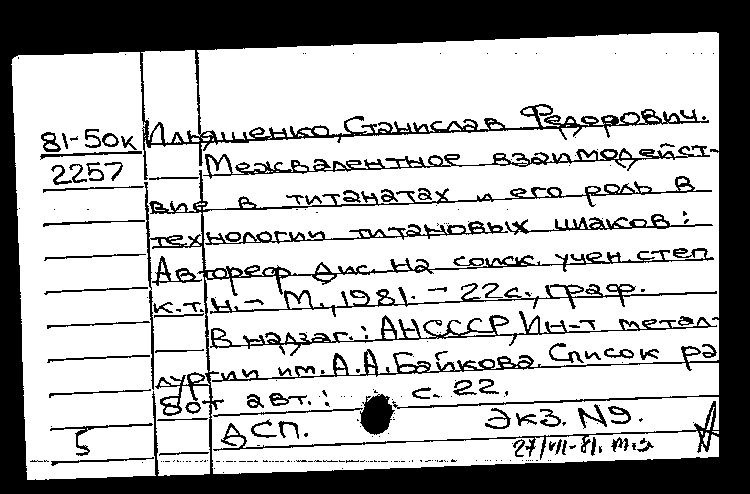 81-50к Ильяшенко, Станислав Федорович.
2257 Межвалентное взаимодейст-
вие в титанатах и его роль в
технологии титановых шлаков:
Автореф. дис. на соиск. учен. степ.
к.т.н. - М., 1981. - 22с., граф.
В надзаг.: АНСССР, Ин-т метал-
лургии им. А.А.Байкова. Список ра
бот авт.: с. 22.
5 ДСП. Экз. №9.
27/VII-81.